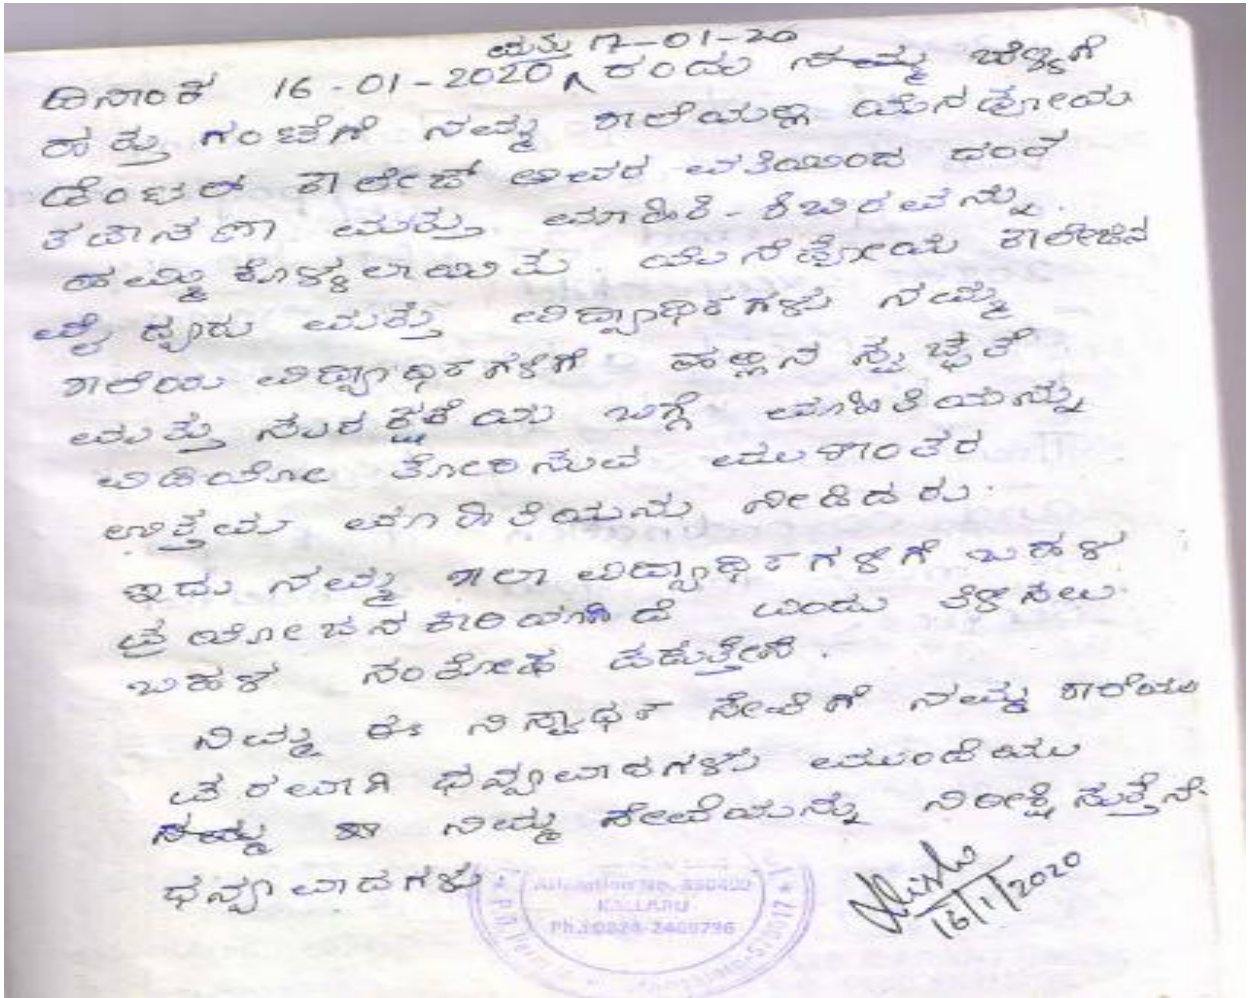 ಮತ್ತು 17-01-20
ದಿನಾಂಕ 16-01-2020 ರಂದು ನಮ್ಮ ಬೆಳ್ಳಿಗೆ
ಹತ್ತು ಗಂಟೆಗೆ ನಮ್ಮ ಶಾಲೆಯಲ್ಲಿ ಯೆನಪೋಯ
ಡೆಂಟಲ್ ಕಾಲೇಜ್ ಅವರ ವತಿಯಿಂದ ದಂತ
ತಪಾಸಣಾ ಮತ್ತು ಮಾಹಿತಿ-ಶಿಬಿರವನ್ನು
ಹಮ್ಮಿಕೊಳ್ಳಲಾಯಿತು. ಯೆನಪೋಯ ಕಾಲೇಜಿನ
ವೈದ್ಯರು ಮತ್ತು ವಿದ್ಯಾರ್ಥಿಗಳು ನಮ್ಮ
ಶಾಲೆಯ ವಿದ್ಯಾರ್ಥಿಗಳಿಗೆ ಹಲ್ಲಿನ ಸ್ವಚ್ಛತೆ
ಮತ್ತು ಸುರಕ್ಷತೆಯ ಬಗ್ಗೆ ಮಾಹಿತಿಯನ್ನು
ವಿಡಿಯೋ ತೋರಿಸುವ ಮುಖಾಂತರ
ಉತ್ತಮ ಮಾಹಿತಿಯನು ನೀಡಿದರು.
ಇದು ನಮ್ಮ ಶಾಲಾ ವಿದ್ಯಾರ್ಥಿಗಳಿಗೆ ಬಹಳ
ಪ್ರಯೋಜನಕಾರಿಯಾಗಿದೆ ಎಂದು ತಿಳಿಸಲು
ಬಹಳ ಸಂತೋಷ ಪಡುತ್ತೇನೆ.
ನಿಮ್ಮ ಈ ನಿಸ್ವಾರ್ಥ ಸೇವೆಗೆ ನಮ್ಮ ಶಾಲೆಯ
ಪರವಾಗಿ ಧನ್ಯವಾದಗಳು ಮುಂದೆಯು
ನಮ್ಮ ನಿಮ್ಮ ಸೇವೆಯನ್ನು ನಿರೀಕ್ಷಿಸುತ್ತೇನೆ.
ಧನ್ಯವಾದಗಳು.
16/1/2020
KALLARU
Ph.:0824-2469796